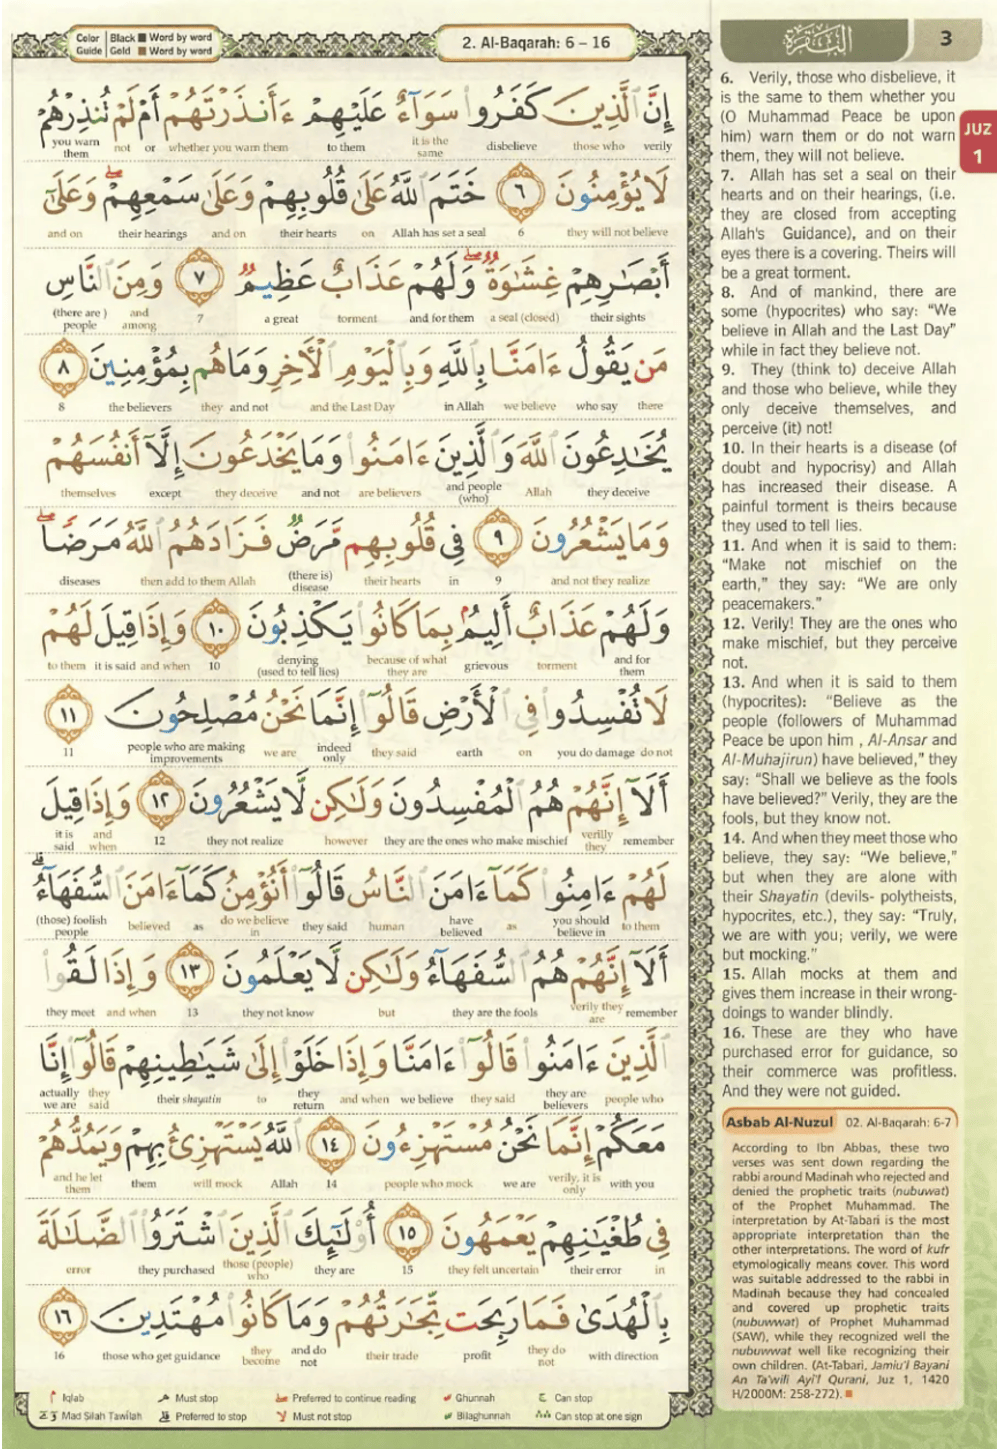 Color Guide | Black ■ Word by word
Gold ■ Word by word
2. Al-Baqarah: 6 – 16
إِنَّ ٱلَّذِينَ كَفَرُوا۟ سَوَآءٌ عَلَيْهِمْ ءَأَنذَرْتَهُمْ أَمْ لَمْ تُنذِرْهُمْ
verily those who disbelieve it is the same to them whether you warn them or not you warn them
لَا يُؤْمِنُونَ ٦ خَتَمَ ٱللَّهُ عَلَىٰ قُلُوبِهِمْ وَعَلَىٰ سَمْعِهِمْ ۖ وَعَلَىٰٓ
they will not believe 6 Allah has set a seal on their hearts and on their hearings and on
أَبْصَٰرِهِمْ غِشَٰوَةٌ ۖ وَلَهُمْ عَذَابٌ عَظِيمٌ ٧ وَمِنَ ٱلنَّاسِ
their sights a seal (closed) and for them torment a great 7 and among (there are ) people
مَن يَقُولُ ءَامَنَّا بِٱللَّهِ وَبِٱلْيَوْمِ ٱلْأَخِرِ وَمَا هُم بِمُؤْمِنِينَ ٨
there who say we believe in Allah and the Last Day and not they the believers 8
يُخَٰدِعُونَ ٱللَّهَ وَٱلَّذِينَ ءَامَنُوا۟ وَمَا يَخْدَعُونَ إِلَّآ أَنفُسَهُمْ
they deceive Allah and people (who) are believers and not they deceive except themselves
وَمَا يَشْعُرُونَ ٩ فِى قُلُوبِهِم مَّرَضٌ فَزَادَهُمُ ٱللَّهُ مَرَضًا ۖ
and not they realize 9 in their hearts (there is) disease then add to them Allah diseases
وَلَهُمْ عَذَابٌ أَلِيمٌۢ بِمَا كَانُوا۟ يَكْذِبُونَ ١٠ وَإِذَا قِيلَ لَهُمْ
and for them torment grievous because of what they are denying (used to tell lies) 10 and when it is said to them
لَا تُفْسِدُوا۟ فِى ٱلْأَرْضِ قَالُوٓا۟ إِنَّمَا نَحْنُ مُصْلِحُونَ ١١
do not you do damage on earth they said indeed only we are people who are making improvements 11
أَلَآ إِنَّهُمْ هُمُ ٱلْمُفْسِدُونَ وَلَٰكِن لَّا يَشْعُرُونَ ١٢ وَإِذَا قِيلَ
remember verilly they they are the ones who make mischief however they not realize 12 and when it is said
لَهُمْ ءَامِنُوا۟ كَمَآ ءَامَنَ ٱلنَّاسُ قَالُوٓا۟ أَنُؤْمِنُ كَمَآ ءَامَنَ ٱلسُّفَهَآءُ ۗ
to them you should believe in as have believed human they said do we believe in as believed (those) foolish people
أَلَآ إِنَّهُمْ هُمُ ٱلسُّفَهَآءُ وَلَٰكِن لَّا يَعْلَمُونَ ١٣ وَإِذَا لَقُوا۟
remember verily they are they are the fools but they not know 13 and when they meet
ٱلَّذِينَ ءَامَنُوا۟ قَالُوٓا۟ ءَامَنَّا وَإِذَا خَلَوْا۟ إِلَىٰ شَيَٰطِينِهِمْ قَالُوٓا۟ إِنَّا
people who they are believers they said we believe and when they return to their shayatin they said actually we are
مَعَكُمْ إِنَّمَا نَحْنُ مُسْتَهْزِءُونَ ١٤ ٱللَّهُ يَسْتَهْزِئُ بِهِمْ وَيَمُدُّهُمْ
with you verily, it is only we are people who mock 14 Allah will mock them and he let them
فِى طُغْيَٰنِهِمْ يَعْمَهُونَ ١٥ أُو۟لَٰٓئِكَ ٱلَّذِينَ ٱشْتَرَوُا۟ ٱلضَّلَٰلَةَ
in their error they felt uncertain 15 they are those (people) who they purchased error
بِٱلْهُدَىٰ فَمَا رَبِحَت تِّجَٰرَتُهُمْ وَمَا كَانُوا۟ مُهْتَدِينَ ١٦
with direction they do not profit their trade and do not they become those who get guidance 16
Iqlab Must stop Preferred to continue reading Ghunnah Can stop
Mad Silah Tawilah Preferred to stop Must not stop Bilaghunnah Can stop at one sign
البقرة
3
JUZ
1
6. Verily, those who disbelieve, it
is the same to them whether you
(O Muhammad Peace be upon
him) warn them or do not warn
them, they will not believe.
7. Allah has set a seal on their
hearts and on their hearings, (i.e.
they are closed from accepting
Allah's Guidance), and on their
eyes there is a covering. Theirs will
be a great torment.
8. And of mankind, there are
some (hypocrites) who say: “We
believe in Allah and the Last Day”
while in fact they believe not.
9. They (think to) deceive Allah
and those who believe, while they
only deceive themselves, and
perceive (it) not!
10. In their hearts is a disease (of
doubt and hypocrisy) and Allah
has increased their disease. A
painful torment is theirs because
they used to tell lies.
11. And when it is said to them:
“Make not mischief on the
earth,” they say: “We are only
peacemakers.”
12. Verily! They are the ones who
make mischief, but they perceive
not.
13. And when it is said to them
(hypocrites): “Believe as the
people (followers of Muhammad
Peace be upon him , Al-Ansar and
Al-Muhajirun) have believed,” they
say: “Shall we believe as the fools
have believed?” Verily, they are the
fools, but they know not.
14. And when they meet those who
believe, they say: “We believe,”
but when they are alone with
their Shayatin (devils- polytheists,
hypocrites, etc.), they say: “Truly,
we are with you; verily, we were
but mocking.”
15. Allah mocks at them and
gives them increase in their wrong-
doings to wander blindly.
16. These are they who have
purchased error for guidance, so
their commerce was profitless.
And they were not guided.
Asbab Al-Nuzul 02. Al-Baqarah: 6-7
According to Ibn Abbas, these two
verses was sent down regarding the
rabbi around Madinah who rejected and
denied the prophetic traits (nubuwat)
of the Prophet Muhammad. The
interpretation by At-Tabari is the most
appropriate interpretation than the
other interpretations. The word of kufr
etymologically means cover. This word
was suitable addressed to the rabbi in
Madinah because they had concealed
and covered up prophetic traits
(nubuwwat) of Prophet Muhammad
(SAW), while they recognized well the
nubuwwat well like recognizing their
own children. (At-Tabari, Jamiu'l Bayani
An Ta'wili Ayi'l Qurani, Juz 1, 1420
H/2000M: 258-272). ■